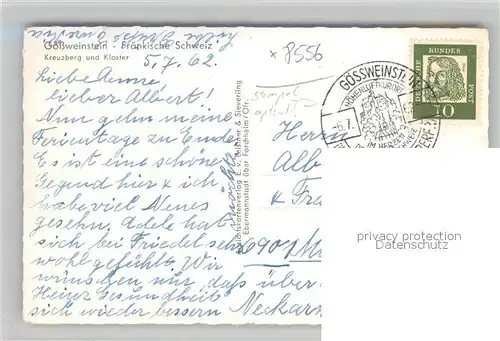 Gößweinstein - Fränkische Schweiz
Kreuzberg und Kloster
5.7.62.
* 8556
Liebe Anne
lieber Albert!
Nun gehn meine
Ferientage zu Ende
Es ist eine schöne
Gegend hier & ich
habe viel Neues
gesehn. Adele hat
sich bei Friedel sehr
wohl gefühlt. Wir
wünschen nur, daß
Heinz Gesundheit
sich wieder bessern
möchte
Ebermannstadt über Forchheim/Ofr.
GÖSSWEINSTEIN
HÖHENLUFTKURORT
IM HERZEN
-6.7.
DEUTSCHE BUNDESPOST
10
Herrn
Alb
& Fra
6901
Neckar
privacy protection
Datenschutz